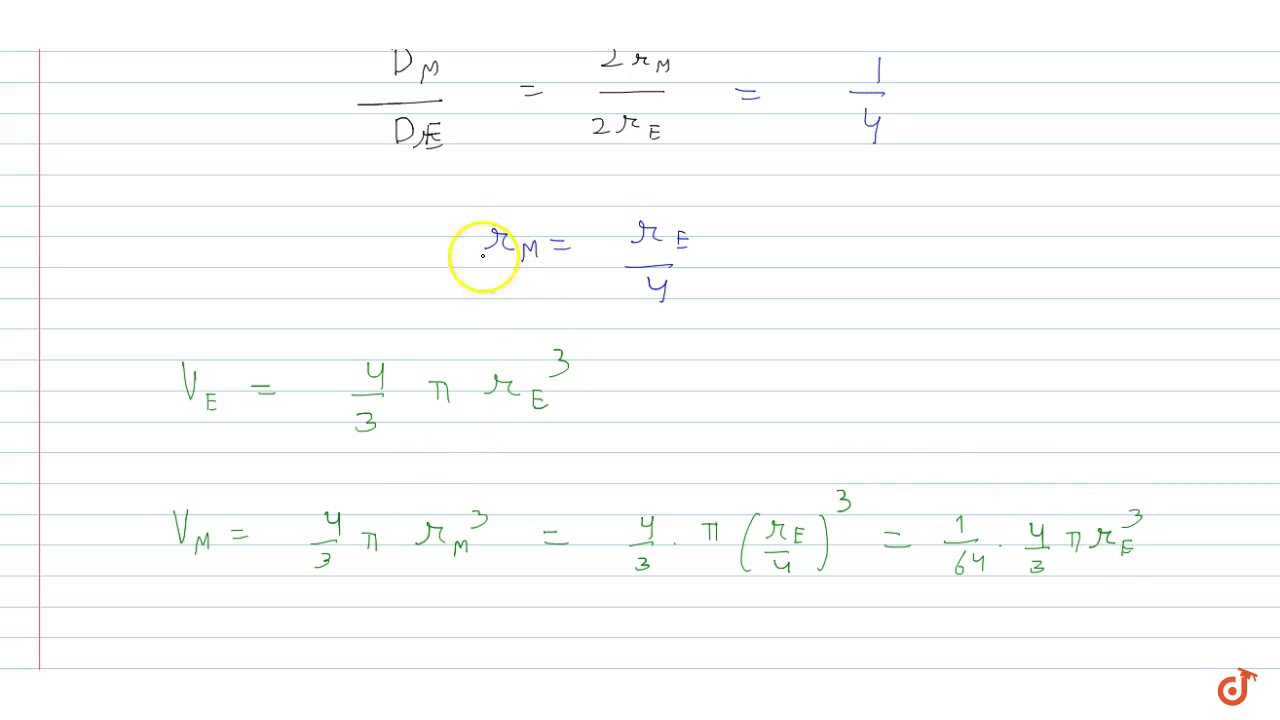 D_M / D_E = 2r_M / 2r_E = 1/4
r_M = r_E / 4
V_E = 4/3 π r_E^3
V_M = 4/3 π r_M^3 = 4/3 . π (r_E/4)^3 = 1/64 . 4/3 π r_E^3